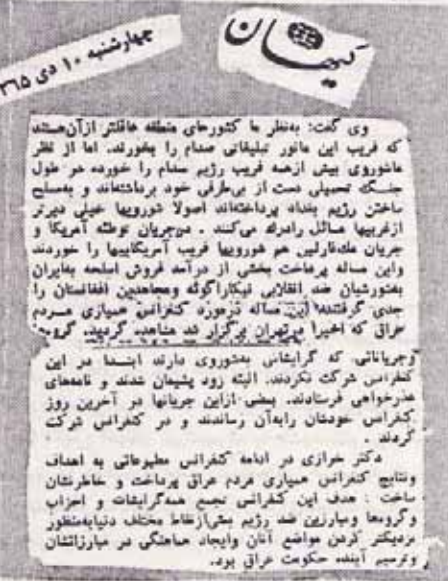 کیهان
چهارشنبه ۱۰ دی ۱۳۶۵
وی گفت: بنظر ما کشورهای منطقه عاقلتر از آن هستند
که فریب این مانور تبلیغاتی صدام را بخورند. اما از نظر
ما شوروی بیش از همه فریب رژیم صدام را خورده در طول
جنگ تحمیلی دست از بی‌طرفی خود برداشته‌اند و به‌مسلح
ساختن رژیم بغداد پرداخته‌اند اصولا شورویها خیلی دیرتر
ازغربیها مسائل رادرك می‌کنند . درجریان توطئه آمریکا و
جریان مك‌فارلین هم شورویها فریب آمریکاییها را خوردند
واین مساله پرداخت بخشی از درآمد فروش اسلحه به‌ایران
به‌شورشیان ضد انقلابی نیکاراگوئه ومجاهدین افغانستان را
جدی گرفتند. این مساله درمورد کنفرانس همیاری مردم
عراق که اخیرا درتهران برگزار شد مشاهده گردید. گروهها
وجریاناتی که گرایشاتی به‌شوروی دارند ابتدا در این
کنفرانس شرکت نکردند. البته زود پشیمان شدند و نامه‌های
عذرخواهی فرستادند. بعضی ازاین جریانها در آخرین روز
کنفرانس خودشان رابه‌آن رساندند و در کنفرانس شرکت
کردند .
دکتر خرازی در ادامه کنفرانس مطبوعاتی به اهداف
ونتایج کنفرانس همیاری مردم عراق پرداخت و خاطرنشان
ساخت : هدف این کنفرانس تجمع همه‌گرایشات و احزاب
وگروهها ومبارزین ضد رژیم بعثی‌ازنقاط مختلف دنیابه‌منظور
نزدیکتر کردن مواضع آنان وایجاد هماهنگی در مبارزاتشان
وترسیم آینده حکومت عراق بود.